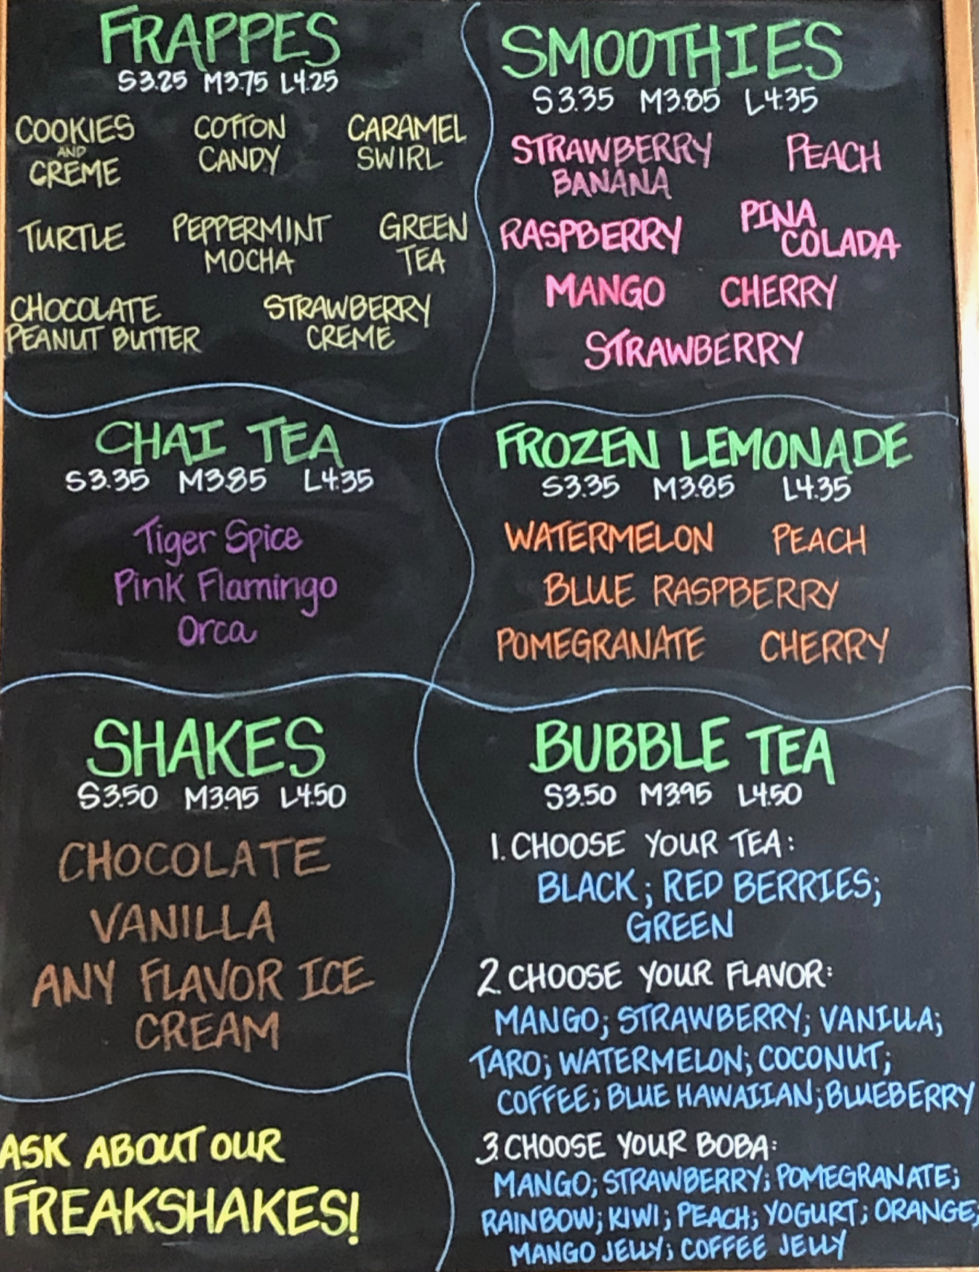 FRAPPES
S3.25 M3.75 L4.25
COOKIES AND CRÈME
COTTON CANDY
CARAMEL SWIRL
TURTLE
PEPPERMINT MOCHA
GREEN TEA
CHOCOLATE PEANUT BUTTER
STRAWBERRY CREME
SMOOTHIES
S3.35 M3.85 L4.35
STRAWBERRY BANANA
PEACH
RASPBERRY
PINA COLADA
MANGO CHERRY
STRAWBERRY
CHAI TEA
S3.35 M3.85 L4.35
Tiger Spice
Pink Flamingo
Orca
FROZEN LEMONADE
S3.35 M3.85 L4.35
WATERMELON PEACH
BLUE RASPBERRY
POMEGRANATE CHERRY
SHAKES
S3.50 M3.95 L4.50
CHOCOLATE
VANILLA
ANY FLAVOR ICE
CREAM
ASK ABOUT OUR
FREAKSHAKES!
BUBBLE TEA
S3.50 M3.95 L4.50
1. CHOOSE YOUR TEA:
BLACK; RED BERRIES;
GREEN
2. CHOOSE YOUR FLAVOR:
MANGO; STRAWBERRY; VANILLA;
TARO; WATERMELON; COCONUT;
COFFEE; BLUE HAWAIIAN; BLUEBERRY
3. CHOOSE YOUR BOBA:
MANGO; STRAWBERRY; POMEGRANATE;
RAINBOW; KIWI; PEACH; YOGURT; ORANGE;
MANGO JELLY; COFFEE JELLY